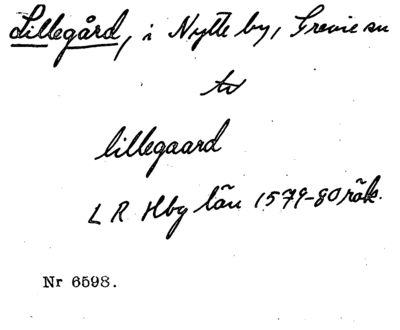 Lillegård, i Nytte by, Grevie sn
tv
lillegaard
L R Hbg län 1579-80 räk.
Nr 6598.